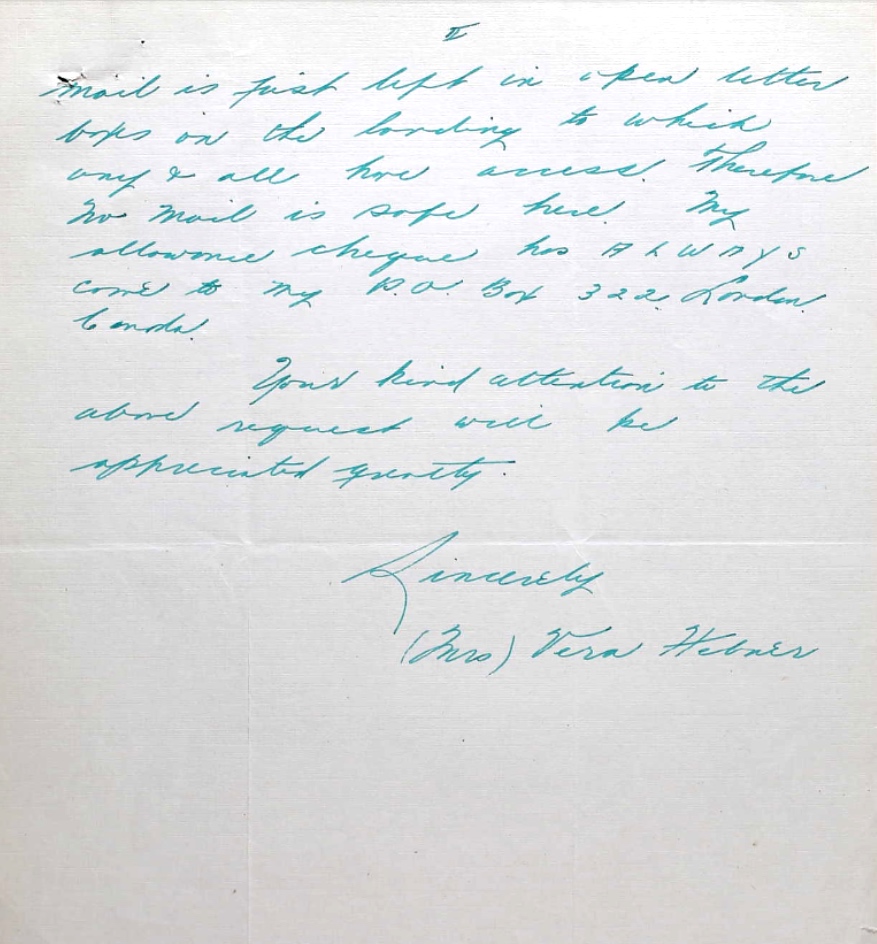 II
Mail is just left in open letter
boxes on the landing to which
any & all have access. Therefore
no mail is safe here. My
allowance cheque has ALWAYS
come to my P.O. Box 322, London
Canada.
Your kind attention to the
above request will be
appreciated greatly.
Sincerely
(Mrs) Vera Hebner